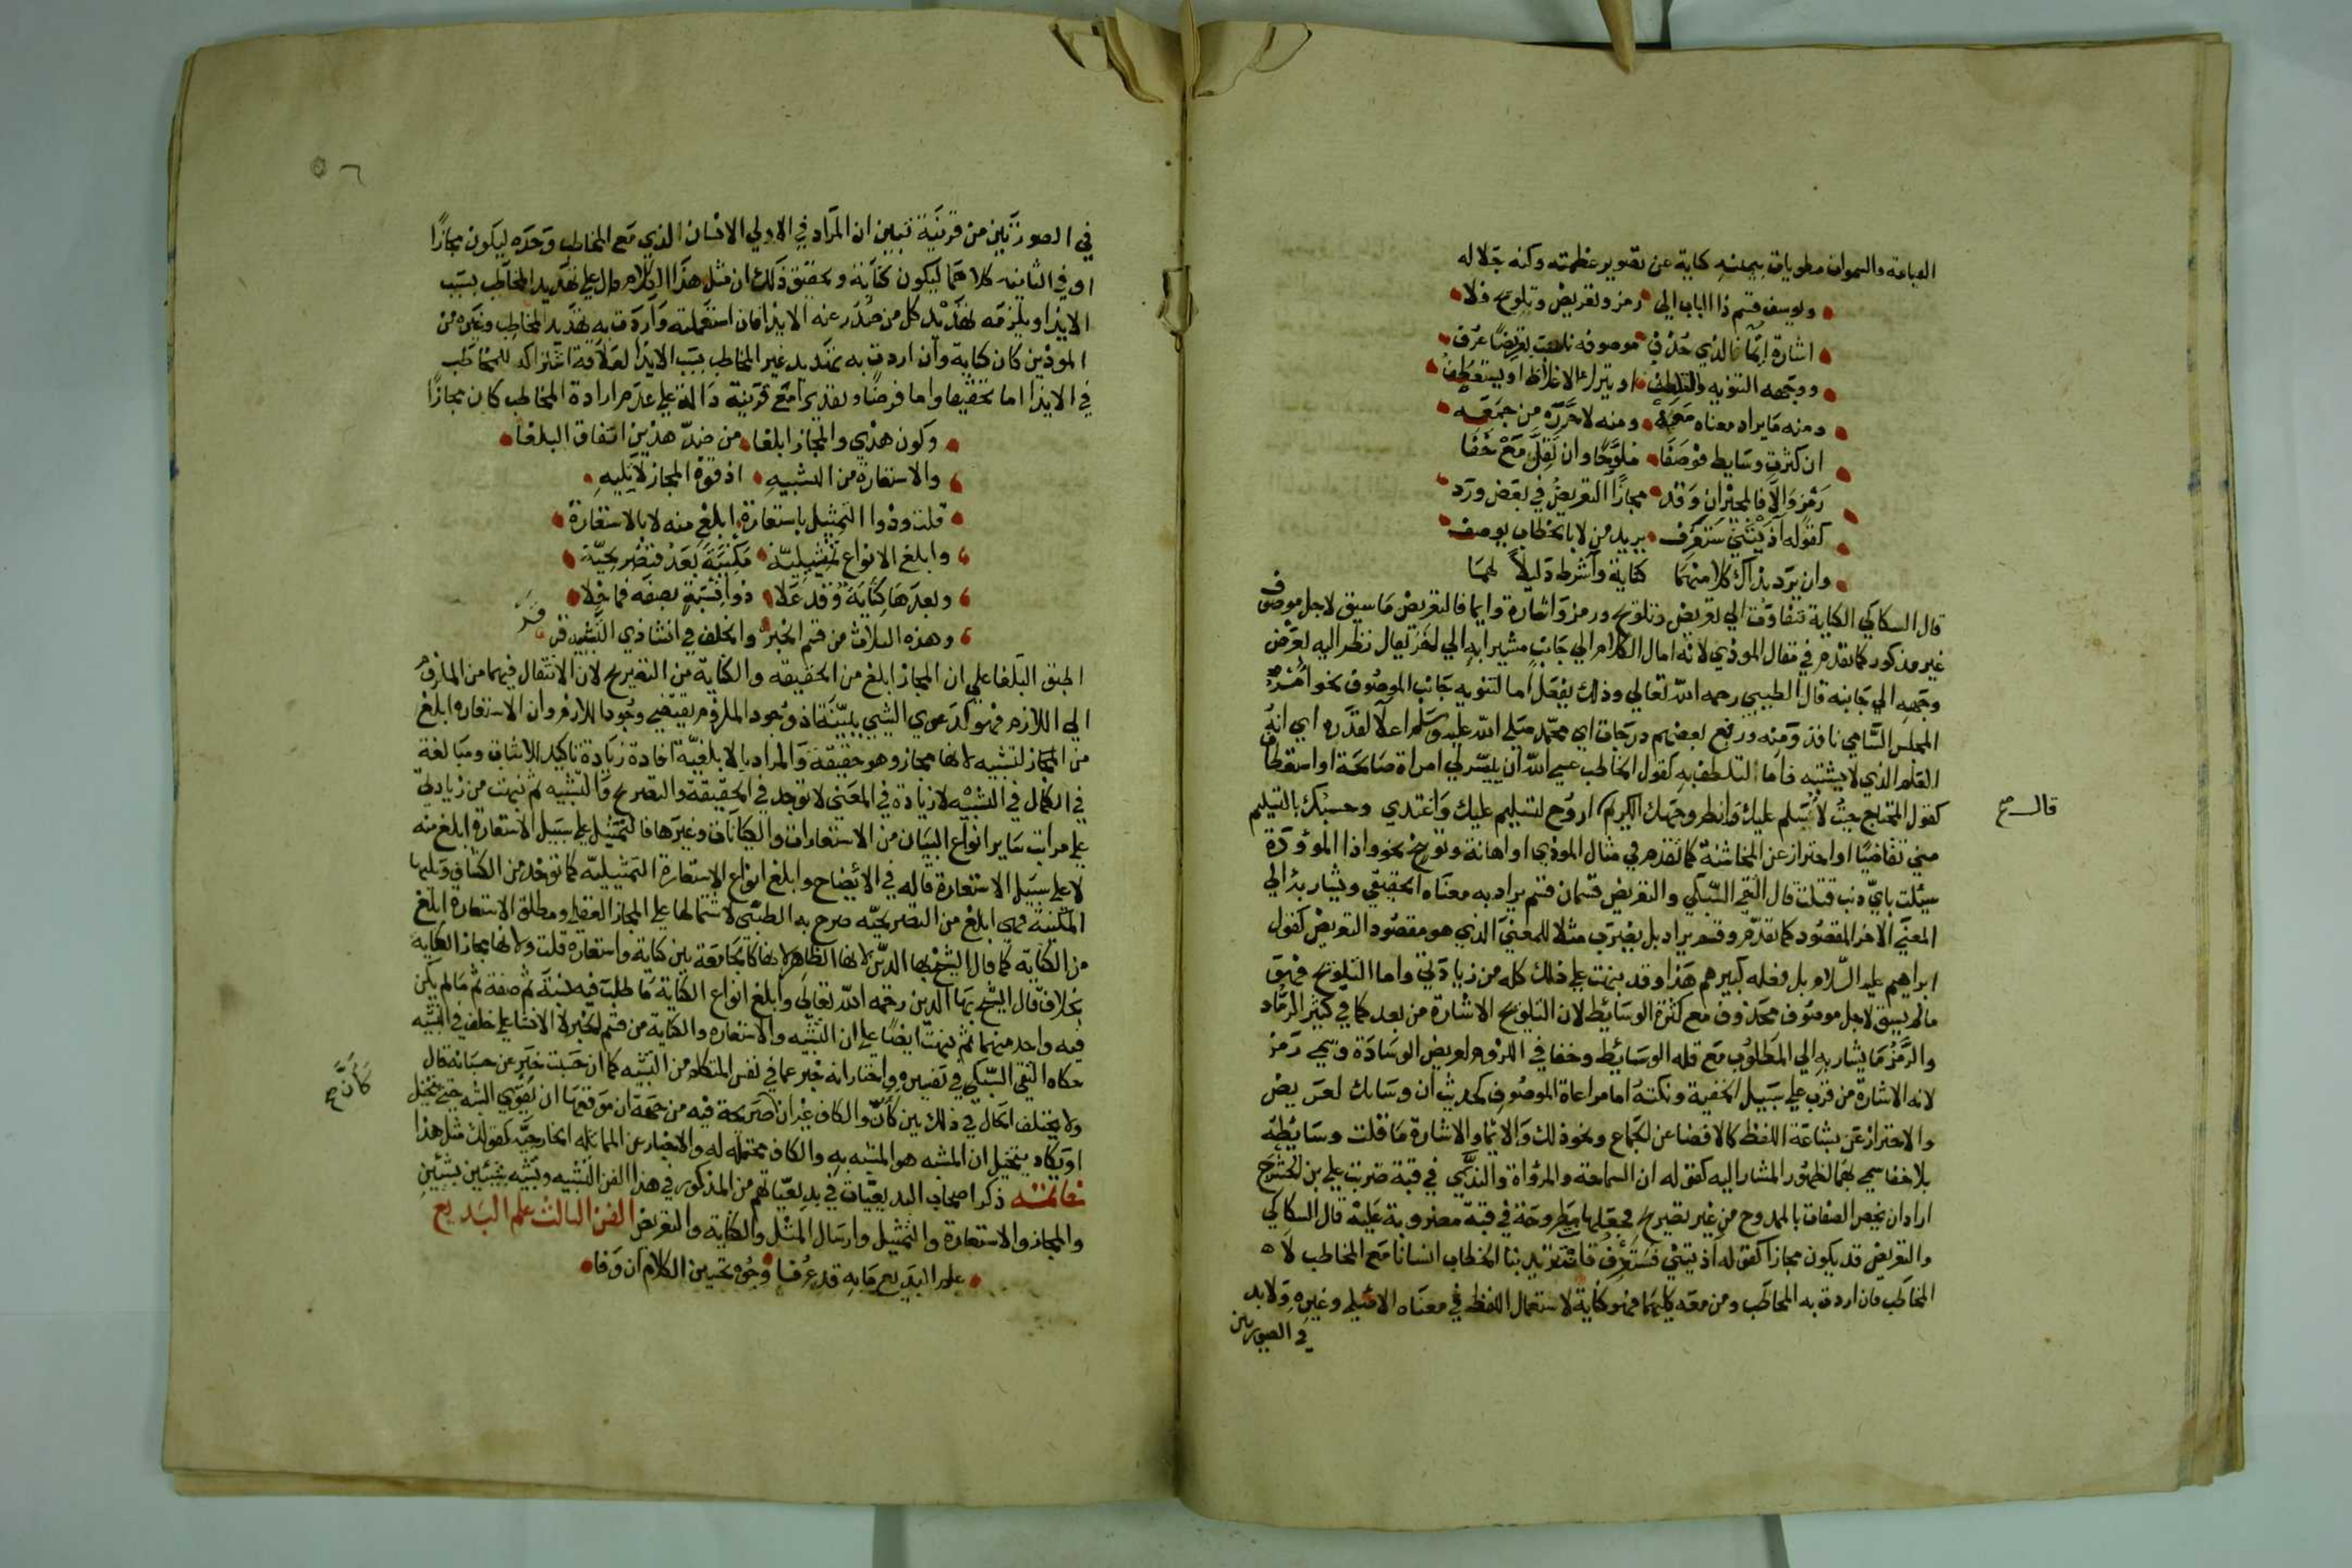 القيامة والسموات مطويات بيمينه كناية عن تصوير عظمته وكنه جلاله
وليوسف قسم ذا الباب الى رمز وتعريض وتلويح فلا
اشارة ايما فالذي حذف موصوفه ناسبت تعريضا عرف
ووجهه التنويه والتلطف او يتركا الاغلاظ او يستعطف
ومنه ما يراد معناه معه ومنه لا حرره من جمعه
ان كثرت وسايط فوصفا ملوحا وان تقل مع خفا
رمز والا فالمخيران وقد مجازا التعريض في بعض ورد
كقوله آذيتني ستعرف يريد من لا بالخطاب يوصف
وان يرد بذاك كلا منهما كناية واشرط دليلا لهما
قال السكاكي الكناية تتفاوت الي تعريض وتلويح ورمز واشارة وايما فالتعريض ما سيق لاجل موصوف
غير مذكور كما تقدم في مثال الموذي لانه امال الكلام الي جانب مشيرا به الي اخر يقال نظر اليه بعرض
وجهه الي جانبه قال الطيبي رحمه الله تعالي وذلك يفعل اما لتنويه جانب الموصوف نحو امر
المجلس السامي نافذ ومنه ورفع بعضهم درجات اي محمد صلى الله عليه وسلم اعلا لقدره اي انه
العلم الذي لا يشتبه واما التلطف به كقول الخاطب عسي الله ان ييسر لي امراة صالحة او استعطاف
كقول المحتاج جيت لاسلم عليك وانظر وجهك الكريم اروح لتسليم عليك واغتدي وحسبك بالتسليم
قال ع
مني تقاضيا او احتراز عن المخاشنة كما تقدم في مثال الموذي او اهانة وتوبيخ نحو واذا الموؤدة
سيلت باي ذنب قتلت قال التقي السبكي والتعريض قسمان قسم يراد به معناه الحقيقي ويشار به الي
المعني الاخر المقصود كما تقدم وقسم يراد بل يضرب مثلا للمعني الذي هو مقصود التعريض كقول
ابراهيم عليه السلام بل فعله كبيرهم هذا وقد نبهت علي ذلك كله من زيادتي واما التلويح فهو
مالم يسق لاجل موصوف محذوف مع كثرة الوسائط لان التلويح الاشارة من بعد كما في كثير الرماد
والرمز ما يشار به الي المطلوب مع قلة الوسائط وخفا في اللزوم لعريض الوسادة وسمي رمز
لانه الاشارة من قرب علي سبيل الخفية ونكتة اما مراعاة الموصوف كحديث ان وسادك لعريض
والاحتراز عن بشاعة اللفظ كالافضا عن الجماع ونحو ذلك والايما والاشارة ما قلت وسايطه
بلا خفا سمي بهما لظهور المشار اليه كقوله ان السماحة والمرواة والندي في قبة ضربت علي بن الحشرج
اراد ان يخص الصفات بالممدوح من غير تصريح فجعلها مطروحة في قبة مضروبة عليه قال السكاكي
والتعريض قد يكون مجازا كقوله آذيتني فستعرف فانت تريد بتا الخطاب انسانا مع المخاطب لا
المخاطب فان اردت به المخاطب ومن معه كليهما فهو كناية لاستعمال اللفظ في معناه الاصلي وغيره ولا بد
في الصورتين
٥٦
في الصورتين من قرينة تبين ان المراد في الاولي الانسان الذي مع المخاطب وحده ليكون مجازا
او في الثانيه كلاهما ليكون كناية وتحقيق ذلك ان مثل هذا الكلام دال علي تهديد المخاطب بسبب
الايذا ويلزمه تهديد كل من صدر عنه الايذا فان استعملته واردت به تهديد المخاطب وغيره من
الموذين كان كناية وان اردت به تهديد غير المخاطب بسبب الايذا لعلاقة اشتراكه للمخاطب
في الايذا اما تحقيقا واما فرضا وتقديرا مع قرينة دالة علي عدم ارادة المخاطب كان مجازا
وكون هذي والمجاز ابلغا من ضد هذين اتفاق البلغا
والاستعارة من التشبيه اذ قوة المجاز لا تليه
قلت وذوا التمثيل باستعارة ابلغ منه لا بالاستعارة
وابلغ الانواع تمثيليه مكنية بعد فتصريحيه
وبعدها كناية وقد علا ذوا نسبة بصفه فما خلا
وهذه الثلاث من قسم الخبر والخلف في انشا ذي التشبيه قر
اطبق البلغا علي ان المجاز ابلغ من الحقيقه والكناية من التصريح لان الانتقال فيهما من الملزوم
الي اللازم فهو كدعوي الشي ببينة اذ وجود الملزوم يقتضي وجود اللازم وان الاستعاره ابلغ
من التشبيه لانها مجاز وهو حقيقة والمراد بالابلغية افادة زيادة تاكيد الاثبات ومبالغة
في الكمال في التشبيه لا زيادة في المعني لا توجد في الحقيقة والتصريح والتشبيه ثم نبهت من زيادتي
علي مراتب ساير انواع البيان من الاستعارات والكنايات وغيرها فالتمثيل علي سبيل الاستعارة ابلغ منه
لا علي سبيل الاستعارة قاله في الايضاح وابلغ انواع الاستعارة التمثيليه كما توخذ من الكشاف ويليها
المكنية فهي ابلغ من التصريحيه صرح به الطيبي لاشتمالها علي المجاز العقلي ومطلق الاستعارة ابلغ
من الكناية كما قال الشيخ بها الدين لانها الظاهر لانها كالجامعة بين كناية واستعاره قلت ولانها مجاز والكنايه
بخلاف قال الشيخ بها الدين رحمه الله تعالي وابلغ انواع الكناية ما طلبت فيه نسبة ثم صفة ثم مالم يكن
فيه واحد منهما ثم نبهت ايضا علي ان التشبيه والاستعاره والكناية من قسم الخبر لا الانشا علي خلف في التشبيه
حكاه التقي السبكي في تفسيره واختار انه خبر عما في نفس المتكلم من التشبيه كما ان حسبت خبر عن حسبانه قال
ولا يختلف الحال في ذلك بين كأن والكاف غير ان صريحة فيه من جهة ان موقعها ان يقوي الشبه حتي يتخيل
كأن ع
او يكاد يتخيل ان المشبه هو المشبه به والكاف محتملة له والاخبار عن المماثله الخارجيه كقولك مثل هذا
خاتمه ذكر اصحاب البديعيات في بديعياتهم من المذكور في هذا الفن التشبيه وتشبيه شيئين بشيئين
والمجاز والاستعارة والتمثيل وارسال المثل والكناية والتعريض الفن الثالث علم البديع
علم البديع ما به قد عرفا وجوه تحسين الكلام ان وفا